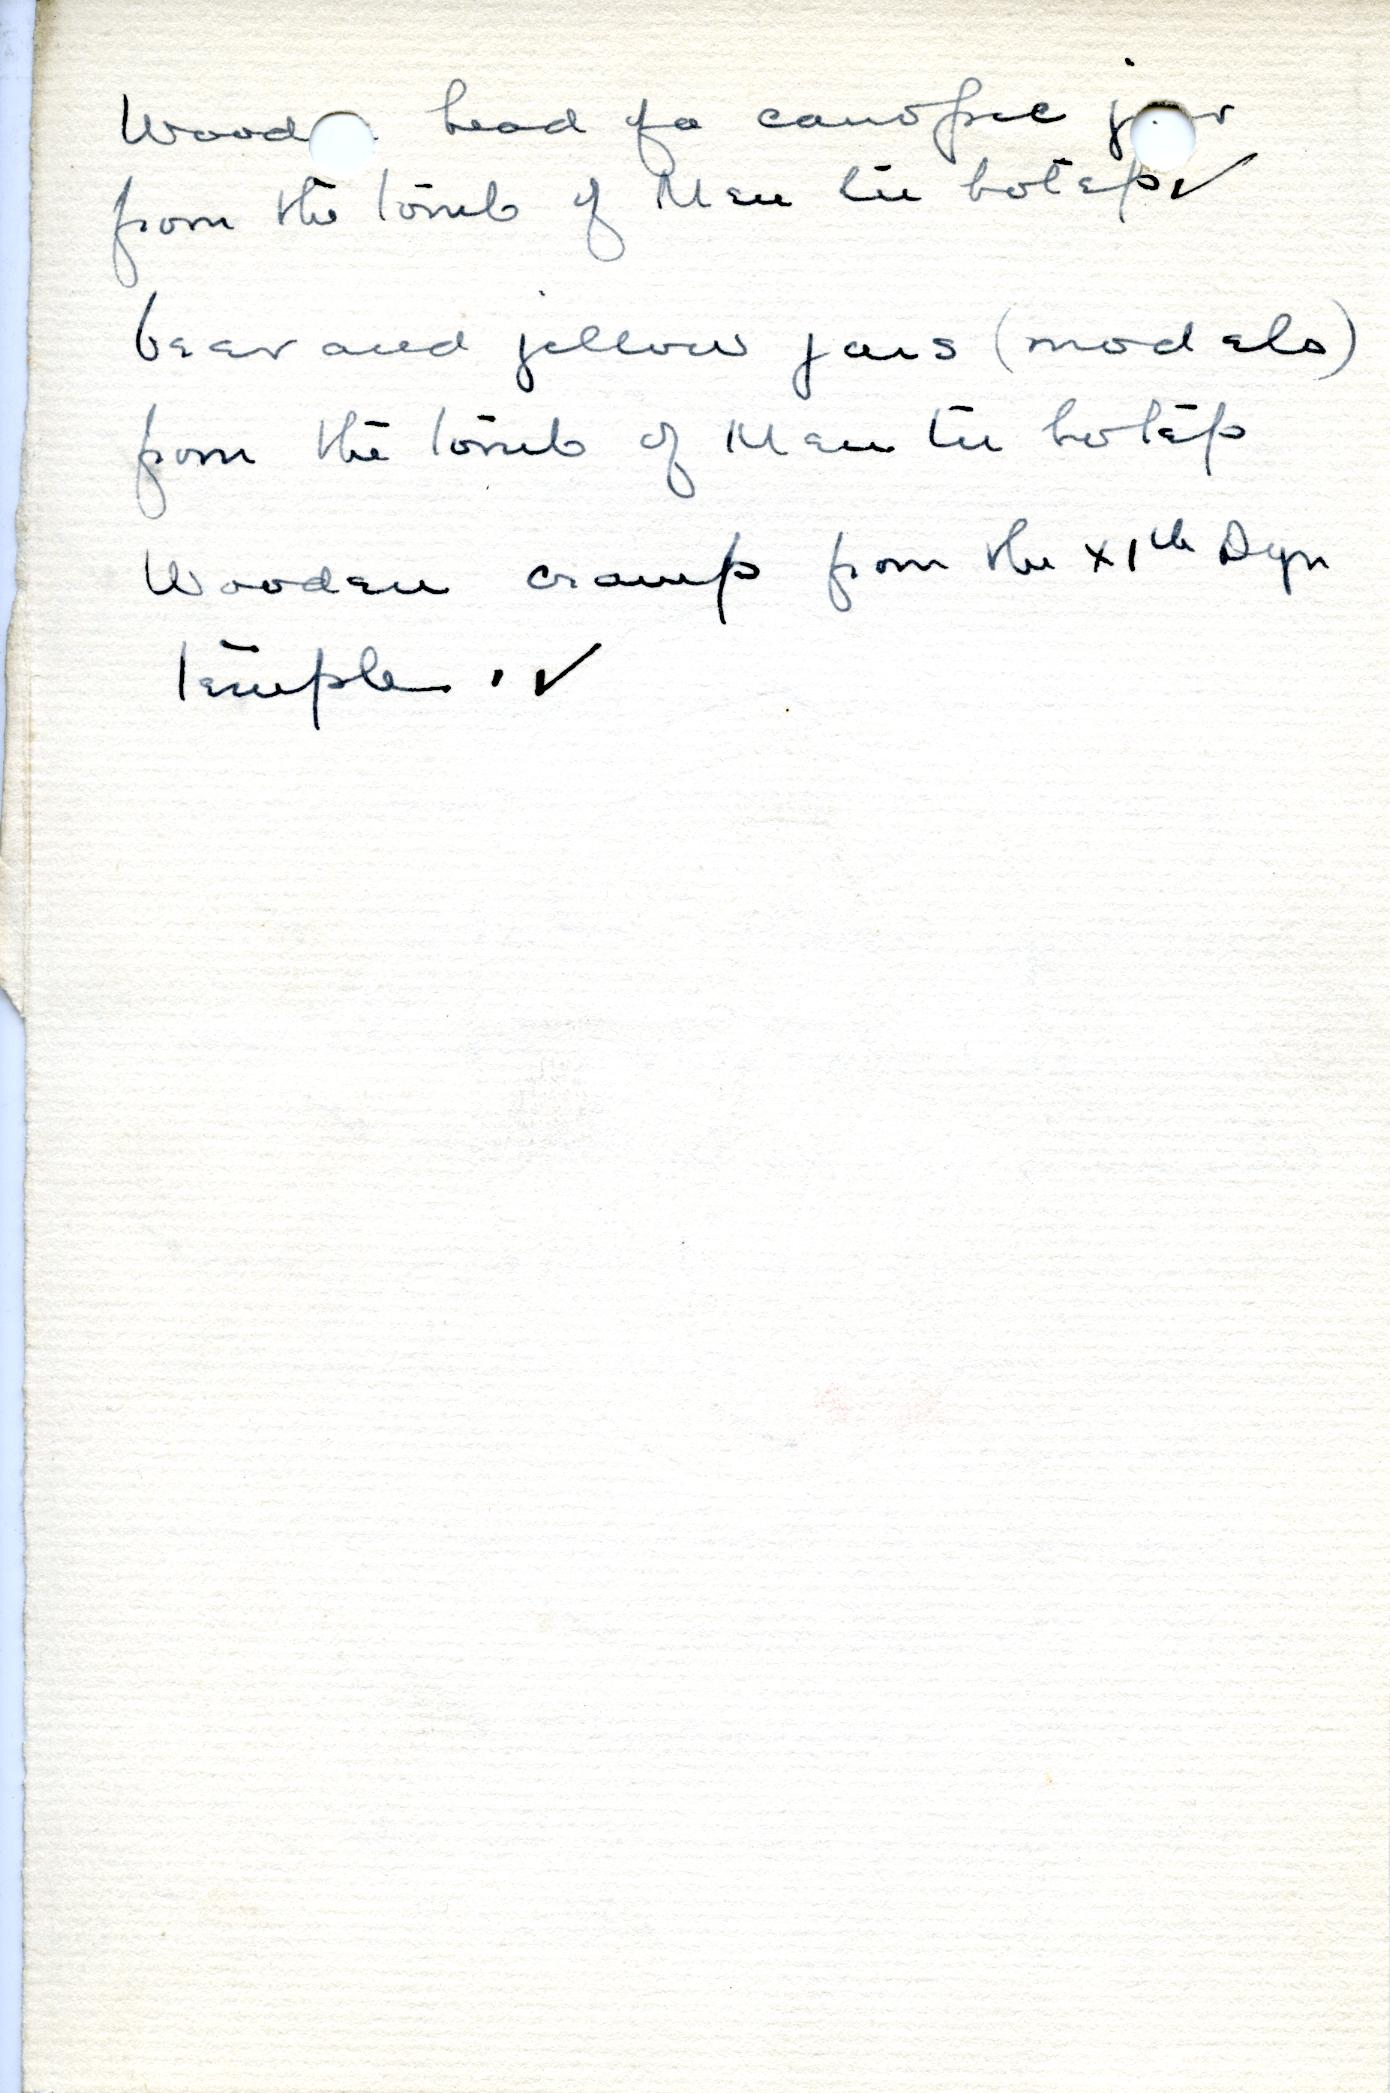 Wooden head of a canopic jar
from the tomb of Men tu hotep ✓
beer and yellow jars (models)
from the tomb of Men tu hotep
Wooden cramp from the XIth Dyn
temple . ✓